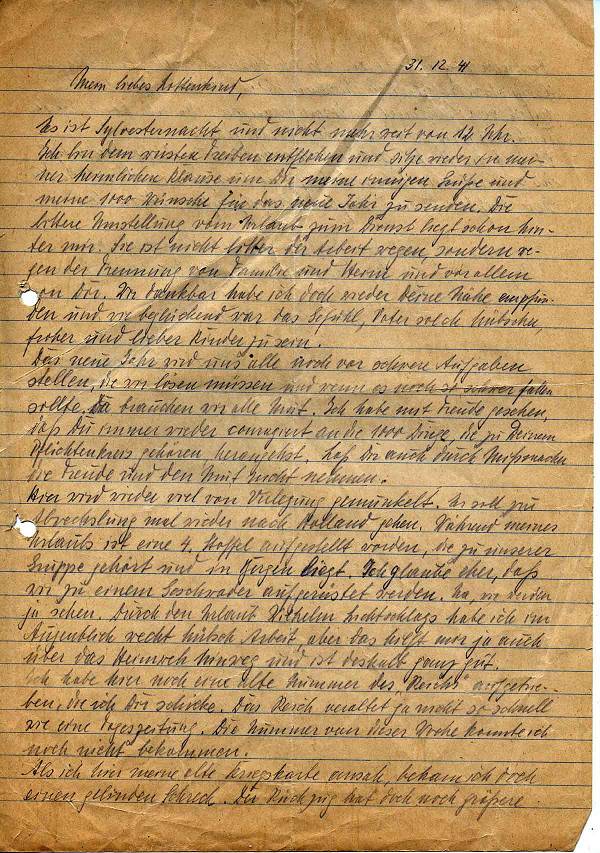 31. 12. 41
Mein liebes Lottenkind,
Es ist Sylvesternacht und nicht mehr weit von 12 Uhr.
Ich bin dem wüsten Treiben entflohen und sitze wieder in mei-
ner heimlichen Klause um Dir meine innigen Grüße und
meine 1000 Wünsche für das neue Jahr zu senden. Die
bittere Umstellung vom Urlaub zum Dienst liegt schon hin-
ter mir. Sie ist nicht bitter der Arbeit wegen, sondern we-
gen der Trennung von Familie und Heim und vor allem
von Dir. Wie dankbar habe ich doch wieder Deine Nähe empfun-
den und wie beglückend war das Gefühl, Vater solch hübscher,
froher und lieber Kinder zu sein.
Das neue Jahr wird uns alle noch vor schwere Aufgaben
stellen, die wir lösen müssen und wenn es noch so schwer fallen
sollte. Da brauchen wir alle Mut. Ich habe mit Freude gesehen,
daß Du immer wieder couragiert an die 1000 Dinge, die zu Deinem
Pflichtenkreis gehören herangehst. Laß Dir auch durch
die Freude und den Mut nicht nehmen.
Hier wird wieder viel von Verlegung gemunkelt. Es soll zur
Abwechslung mal wieder nach Holland gehen. Während meines
Urlaubs ist eine 4. Staffel aufgestellt worden, die zu unserer
Gruppe gehört und in liegt. Ich glaube eher, daß
wir zu einem Geschwader aufgerüstet werden. Na, wir werden
ja sehen. Durch den Urlaub Wilhelm habe ich im
Augenblick recht hübsch Arbeit aber das hilft mir ja auch
über das Heimweh hinweg und ist deshalb ganz gut.
Ich habe hier noch eine alte Nummer des "Reichs" aufgetrie-
ben, die ich Dir schicke. Das Reich veraltet ja nicht so schnell
wie eine Tageszeitung. Die Nummer von dieser Woche konnte ich
noch nicht bekommen.
Als ich hier meine alte Kriegskarte ansah, bekam ich doch
einen gelinden Schreck. Der Rückzug hat doch noch größere